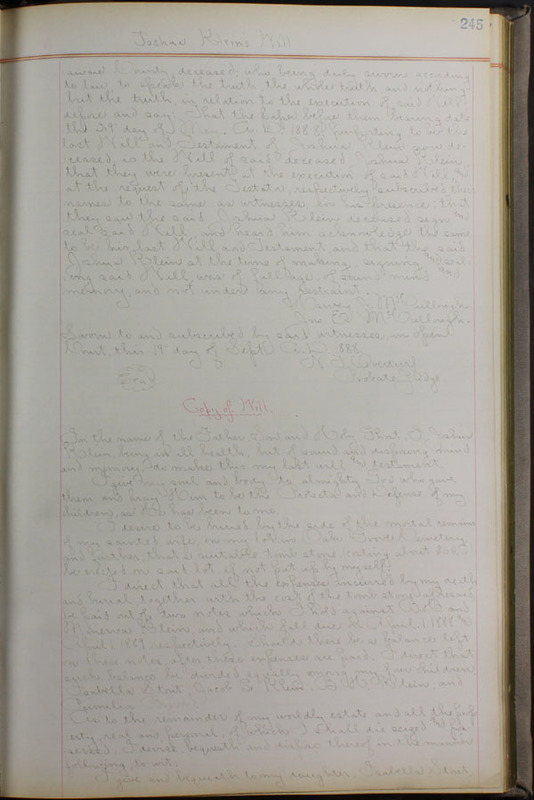 245
Joshua Klein's Will
County deceased, who being duly sworn according
to law, to speak the truth the whole truth and nothing
but the truth, in relation to the execution of said Will
depose and say: That the paper before them bearing date
the day of A.D. 1888, purporting to be the
last Will and Testament of Joshua Klein now de-
ceased, is the Will of said deceased Joshua Klein,
that they were present at the execution of said Will, and
at the request of the Testator, respectively subscribed their
names to the same as witnesses, in his presence; that
they saw the said Joshua Klein deceased sign and
seal said Will, and heard him acknowledge the same
to be his last Will and Testament, and that the said
Joshua Klein at the time of making, signing and seal-
ing said Will was of full age, of sound mind and
memory, and not under any restraint.
McCullough
Jno. McCullough.
Sworn to and subscribed by said witnesses, in open
Court, this 19 day of Sept. A.D. 1888
Probate Judge
Seal
Copy of Will.
In the name of the Father Son and Holy Ghost. I, Joshua
Klein, being in ill health, but of sound and disposing mind
and memory, do make this my last will and testament.
I give my soul and body to almighty God who gave
them and pray Him to be the Protector and Defense of my
children, as He has been to me.
I desire to be buried by the side of the mortal remains
of my sainted wife, on my lot in Oak Grove Cemetery
and further that a suitable tomb stone, costing about
be erected on said lot if not put up by myself.
I direct that all the expenses incurred by my death
and burial, together with the cost of the tomb stone aforesaid
be paid out of two notes which I hold against and
America Klein and which fall due April 1 1888 and
April 1 1889 respectively. Should there be a balance left
on these notes, after these expenses are paid, I direct that
such balance be divided equally among my children
Isabella Stout, Jacob S. Klein, Klein and
As to the remainder of my worldly estate and all the prop-
erty, real and personal, of which I shall die seized and pos-
sessed, I devise, bequeath and dispose thereof in the manner
following to wit:
I give and bequeath to my daughter Isabella Stout